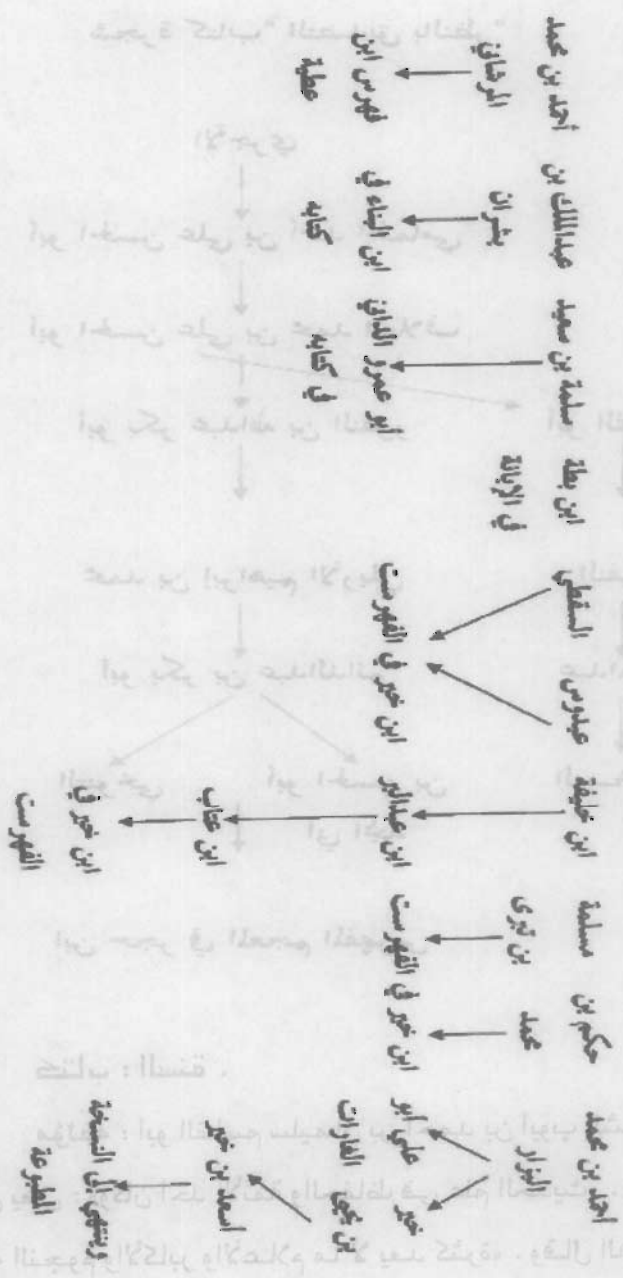 أحمد بن محمد
البزار
خير
علي أبو
الغارات
بن يحيى
أسعد بن خير
وينتهي إلى النسخة
المطبوعة
حكم بن
محمد
ابن خير في الفهرست
مسلمة
بن تبرى
ابن خليفة
ابن عبدالبر
ابن عتاب
ابن خير في
الفهرست
عبدوس
السقطي
ابن خير في الفهرست
ابن بطة
في الإبانة
سلمة بن سعيد
أبو عمرو الداني
في كتابه
عبدالملك بن
بشران
ابن البناء في
كتابه
أحمد بن محمد
المرشاني
فهرس ابن
عطية